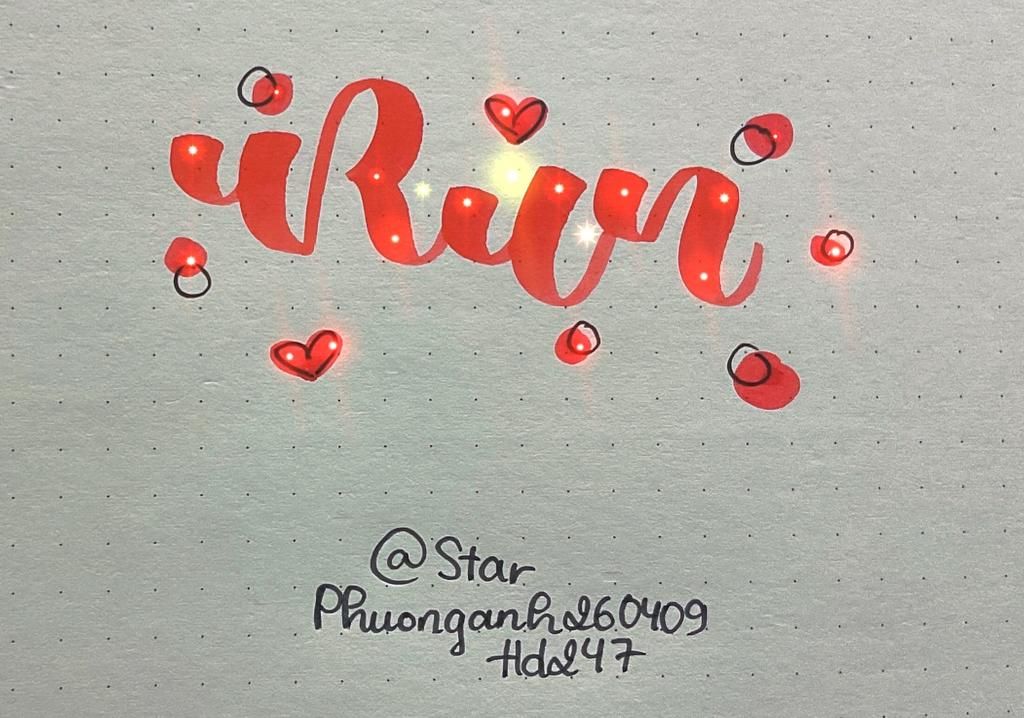 Run
@Star
Phuonganh260409
Hd247